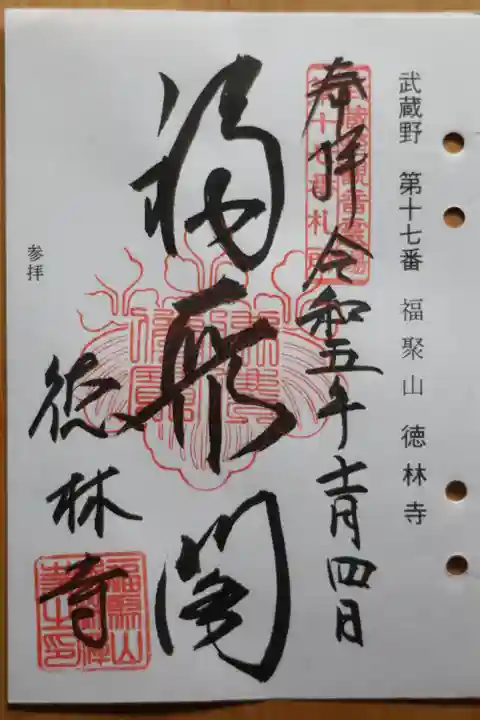 武蔵野 第十七番 福聚山 徳林寺
武蔵野観音霊場
第十七番札所
奉拝 令和五年十一月四日
福聚閣
徳林寺
参拝